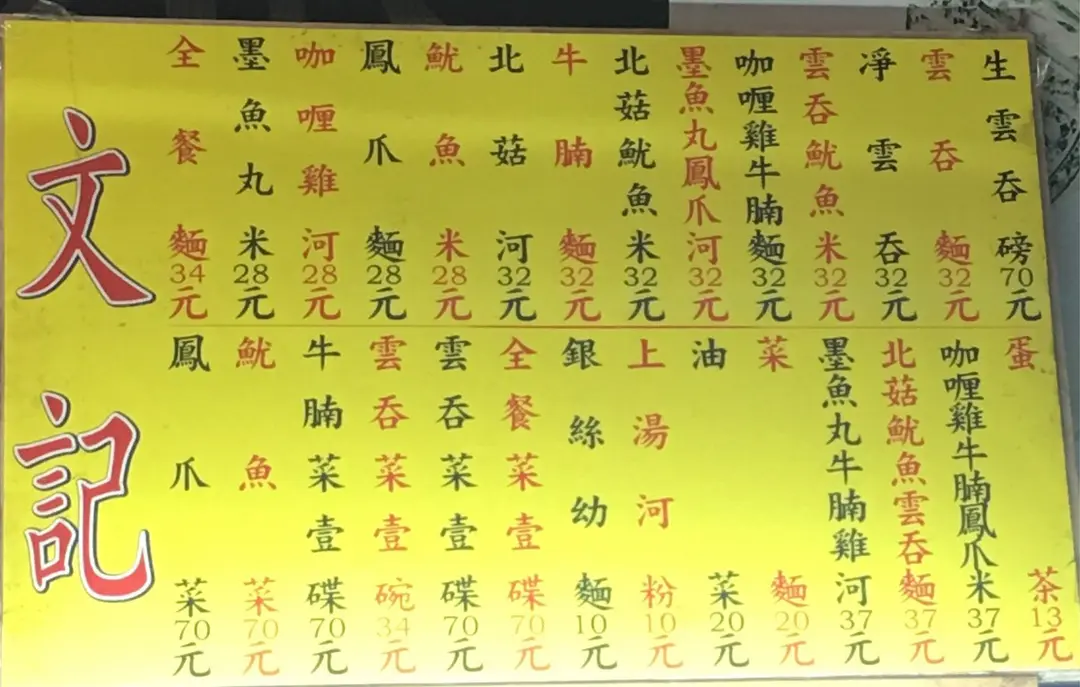 文記
全餐麵34元
墨魚丸米28元
咖喱雞河28元
鳳爪麵28元
魷魚米28元
北菇河32元
牛腩麵32元
北菇魷魚米32元
墨魚丸鳳爪河32元
咖喱雞牛腩麵32元
雲吞魷魚米32元
淨雲吞32元
雲吞麵32元
生雲吞磅70元
鳳爪菜70元
魷魚菜70元
牛腩菜壹碟70元
雲吞菜壹碗34元
雲吞菜壹碟70元
全餐菜壹碟70元
銀絲幼麵10元
上湯河粉10元
油菜20元
菜麵20元
墨魚丸牛腩雞河37元
北菇魷魚雲吞麵37元
咖喱雞牛腩鳳爪米37元
蛋茶13元